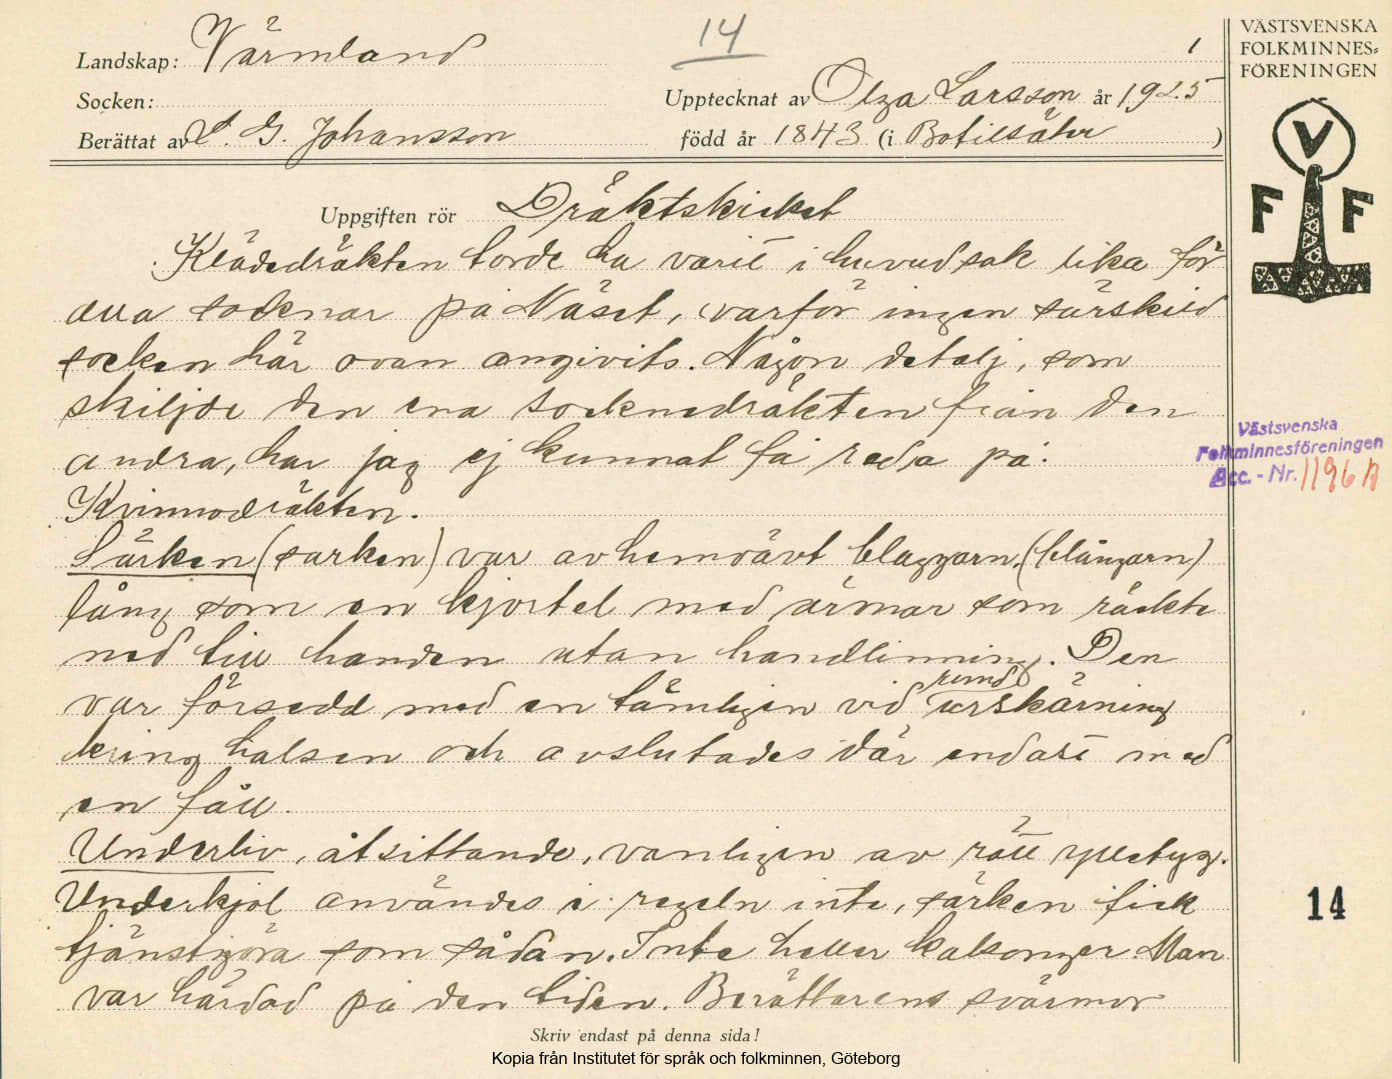 14
1
Landskap: Värmland
Socken:
Upptecknat av Olga Larsson år 1925
Berättat av L. G. Johansson född år 1843 (i Botilsäter)
VÄSTSVENSKA
FOLKMINNES=
FÖRENINGEN
V
F F
Uppgiften rör Dräktskicket
Klädedräkten torde ha varit i huvudsak lika för
alla socknar på Näset, varför ingen särskild
socken här ovan angivits. Någon detalj, som
skiljde den ena sockendräkten från den
andra, har jag ej kunnat få reda på.
Kvinnodräkten.
Särken (sarken) var av hemvävt blaggarn, (blångarn)
lång som en kjortel med ärmar som räckte
ned till handen utan handlinning. Den
rund
var försedd med en tämligen vid urskärning
kring halsen och avslutades där endast med
en fåll.
Underliv, åtsittande, vanligen av rött ylletyg.
Underkjol användes i regeln inte, särken fick
tjänstgöra som sådan. Inte heller kalsonger. Man
var härdad på den tiden. Berättarens svärmor
Västsvenska
Folkminnesföreningen
Acc. - Nr. 1196
14
Skriv endast på denna sida!
Kopia från Institutet för språk och folkminnen, Göteborg